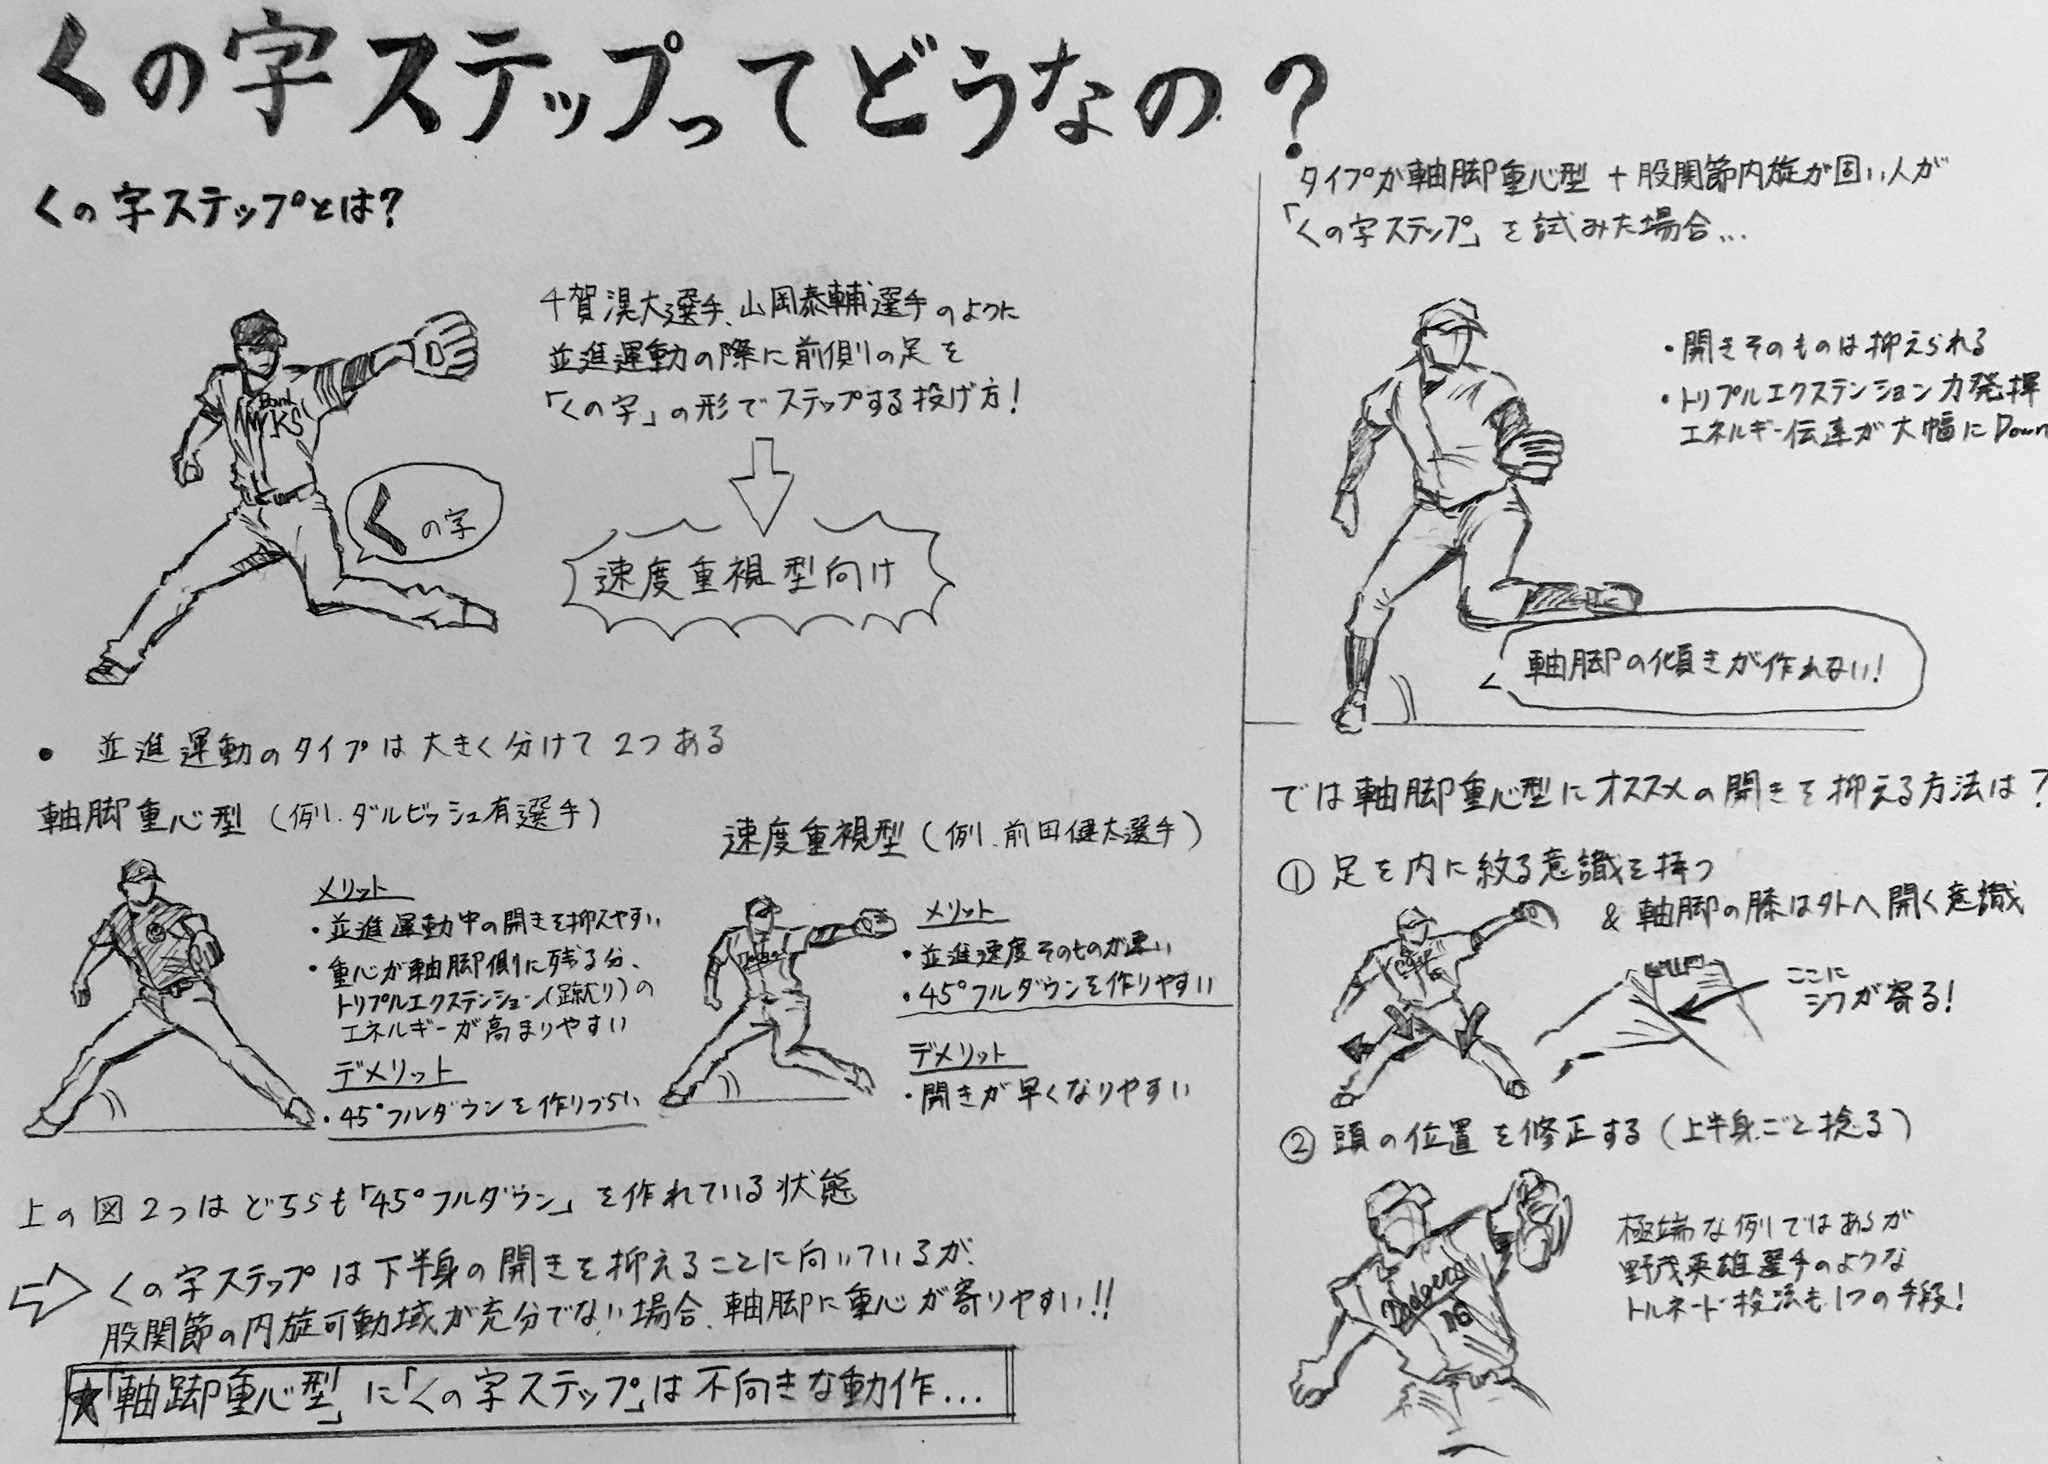 くの字ステップってどうなの?
くの字ステップとは?
千賀滉大選手、山岡泰輔選手のように
並進運動の際に前側の足を
「くの字」の形でステップする投げ方!
くの字
速度重視型向け
• 並進運動のタイプは大きく分けて2つある
軸脚重心型(例.ダルビッシュ有選手)
メリット
・並進運動中の開きを抑えやすい
・重心が軸脚側に残る分、
トリプルエクステンション(蹴り)の
エネルギーが高まりやすい
デメリット
・45°フルダウンを作りづらい
速度重視型(例.前田健太選手)
メリット
・並進速度そのものが速い
・45°フルダウンを作りやすい
デメリット
・開きが早くなりやすい
上の図2つはどちらも「45°フルダウン」を作れている状態
⇨ くの字ステップは下半身の開きを抑えることに向いているが、
股関節の内旋可動域が充分でない場合、軸脚に重心が寄りやすい!!
★「軸脚重心型」に「くの字ステップ」は不向きな動作...
タイプが軸脚重心型+股関節内旋が固い人が
「くの字ステップ」を試みた場合...
・開きそのものは抑えられる
・トリプルエクステンション力発揮
エネルギー伝達が大幅にDown
軸脚の傾きが作れない!
では軸脚重心型にオススメの開きを抑える方法は?
① 足を内に絞る意識を持つ
& 軸脚の膝は外へ開く意識
ここに
シワが寄る!
② 頭の位置を修正する(上半身ごと捻る)
Dodgers
16
極端な例ではあるが
野茂英雄選手のような
トルネード投法も1つの手段!